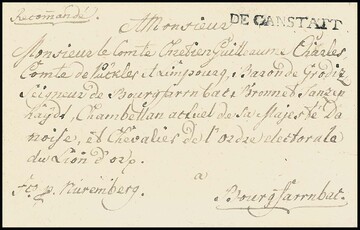 Recomandé
A Monsieur
DE CANSTATT
Monsieur le Comte Chretien Guilleaume Charles
Comte de Pückler et Limpourg, Baron de Groditz
Seigneur de Bourgfarrnbac Bronn et Tanzen
haÿdt, Chambellan actuel de sa Majesté Da
noise, et Chevalier de l'ordre electorale
du Lion d'or.
à
fco p. Nuremberg.
Bourgfarrnbac